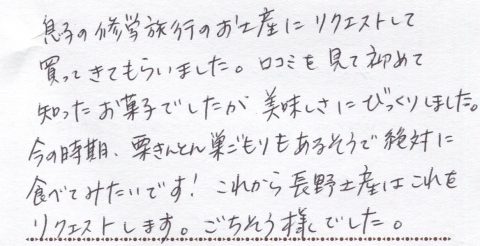 息子の修学旅行のお土産にリクエストして
買ってきてもらいました。口コミを見て初めて
知ったお菓子でしたが美味しさにびっくりしました。
今の時期、栗きんとん巣ごもりもあるそうで絶対に
食べてみたいです！これから長野土産はこれを
リクエストします。ごちそう様でした。